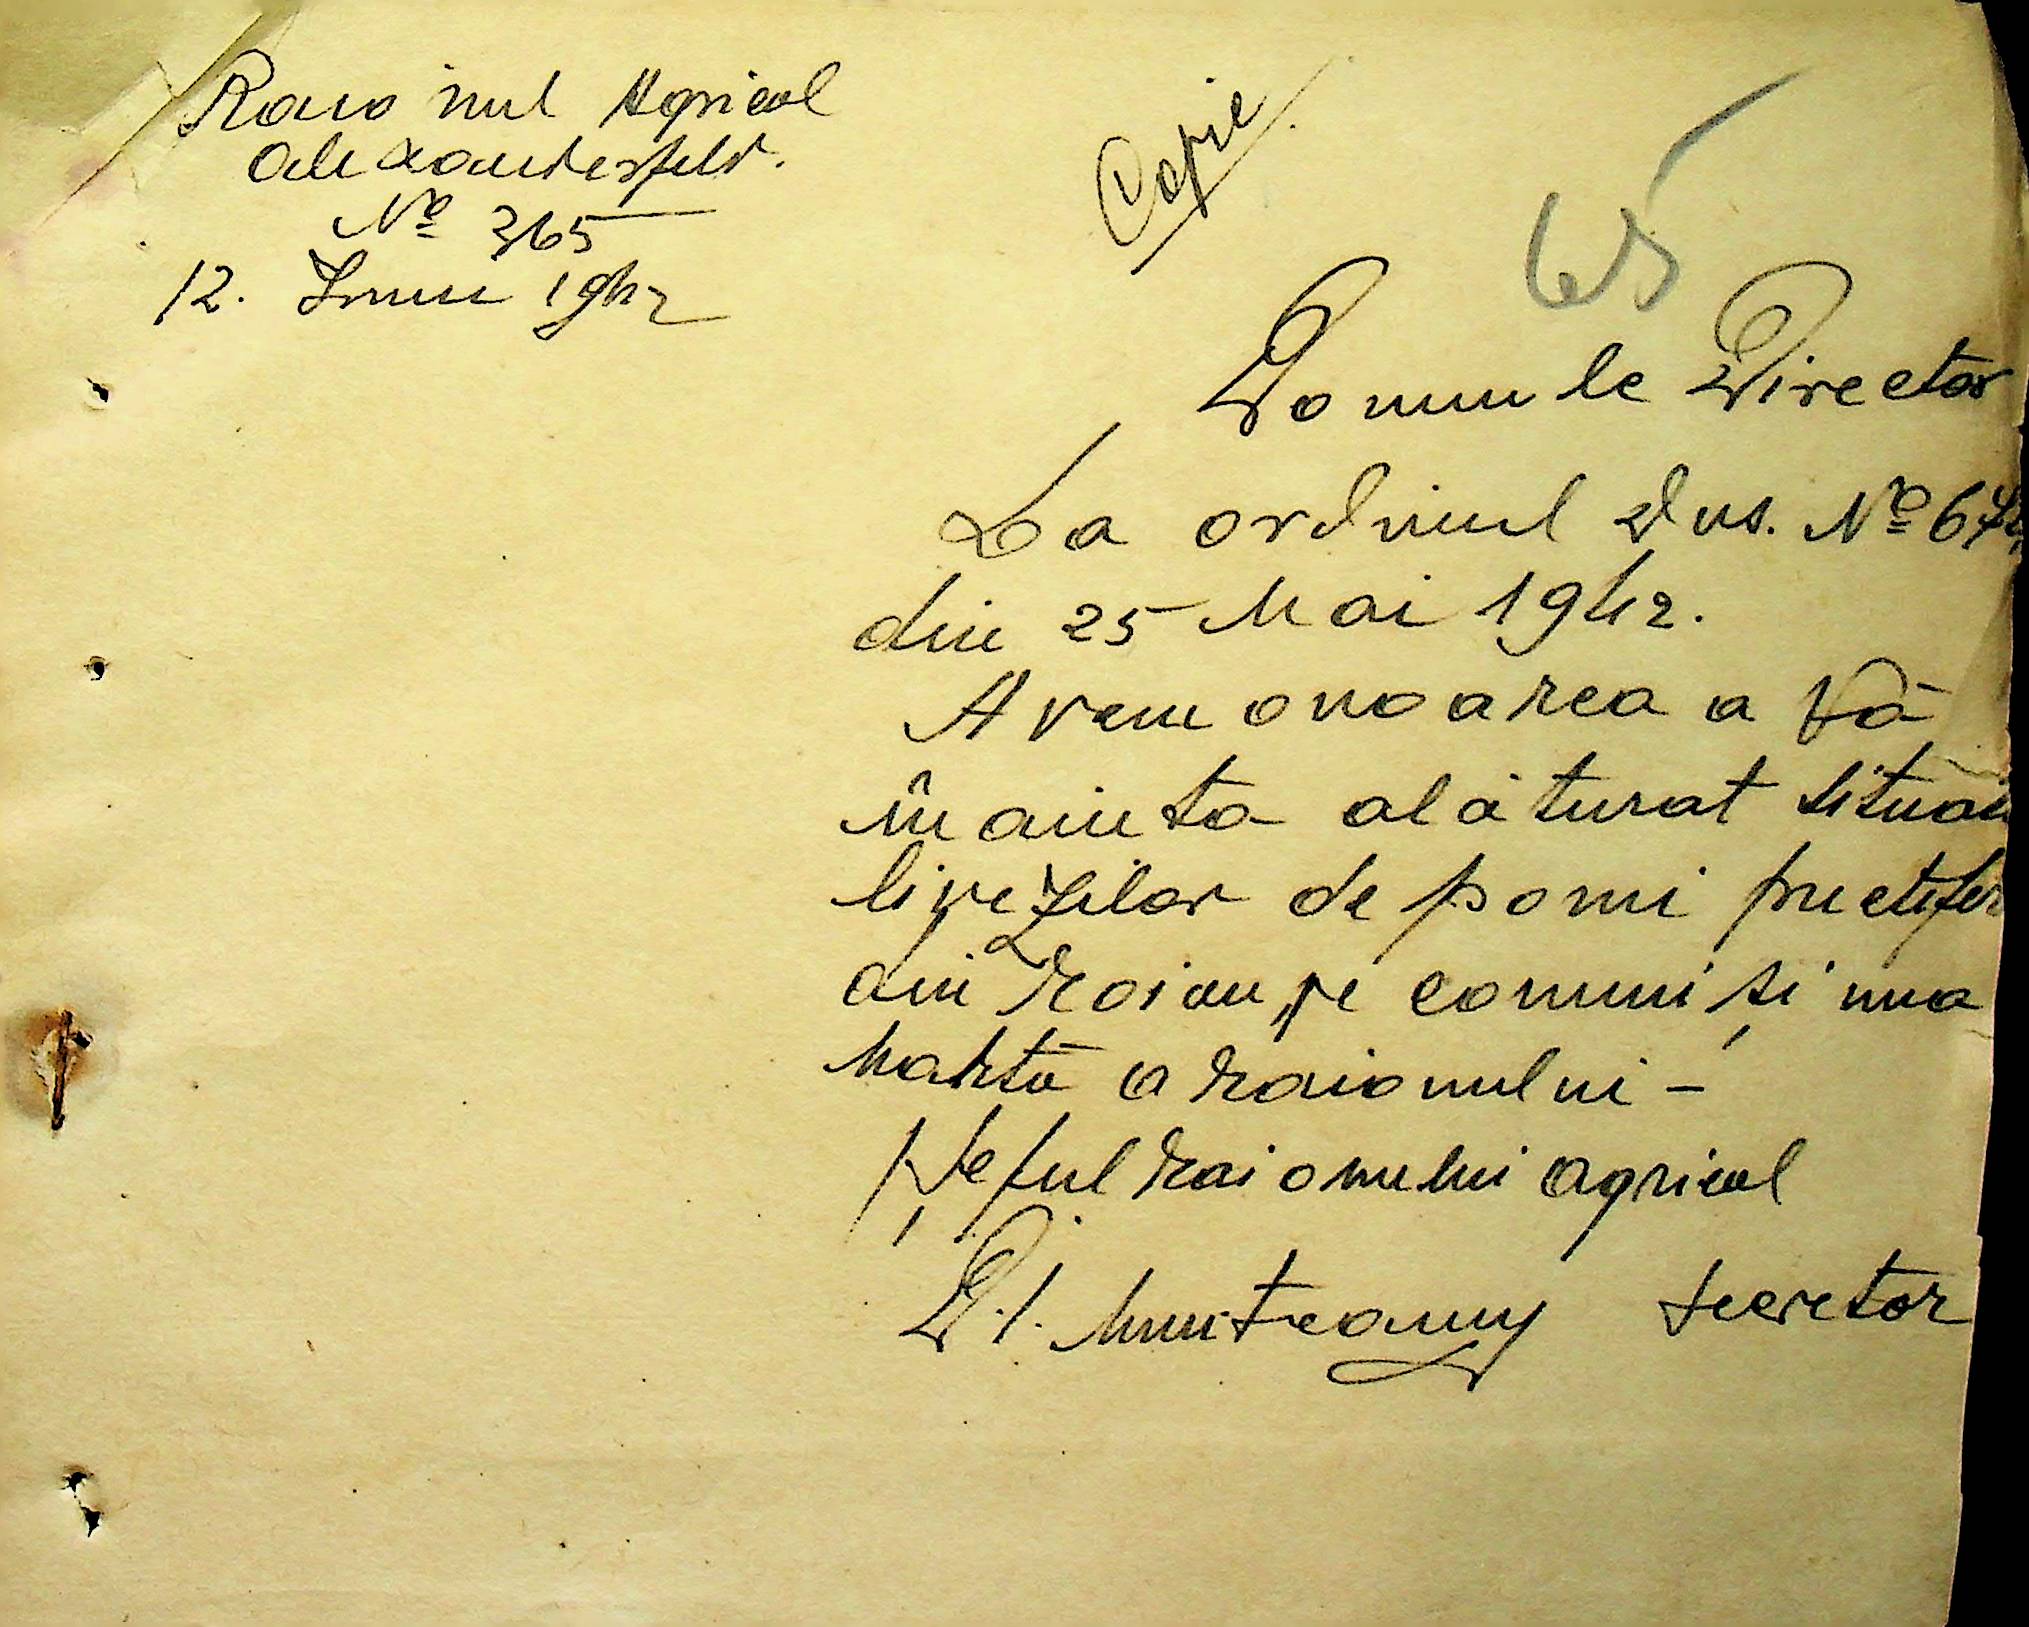 Raionul Agricol
Alexanderfeld.
Nº 365
12. Iunii 1942
Copie
65
Domnule Director
La ordinul Dvs. Nº
din 25 Mai 1942.
Avem onoarea a Vă
înainta alăturat
livezilor de pomi
din Raion, pe comuni și una
hartă a raionului -
Șeful raionului agricol
Munteanu secretar